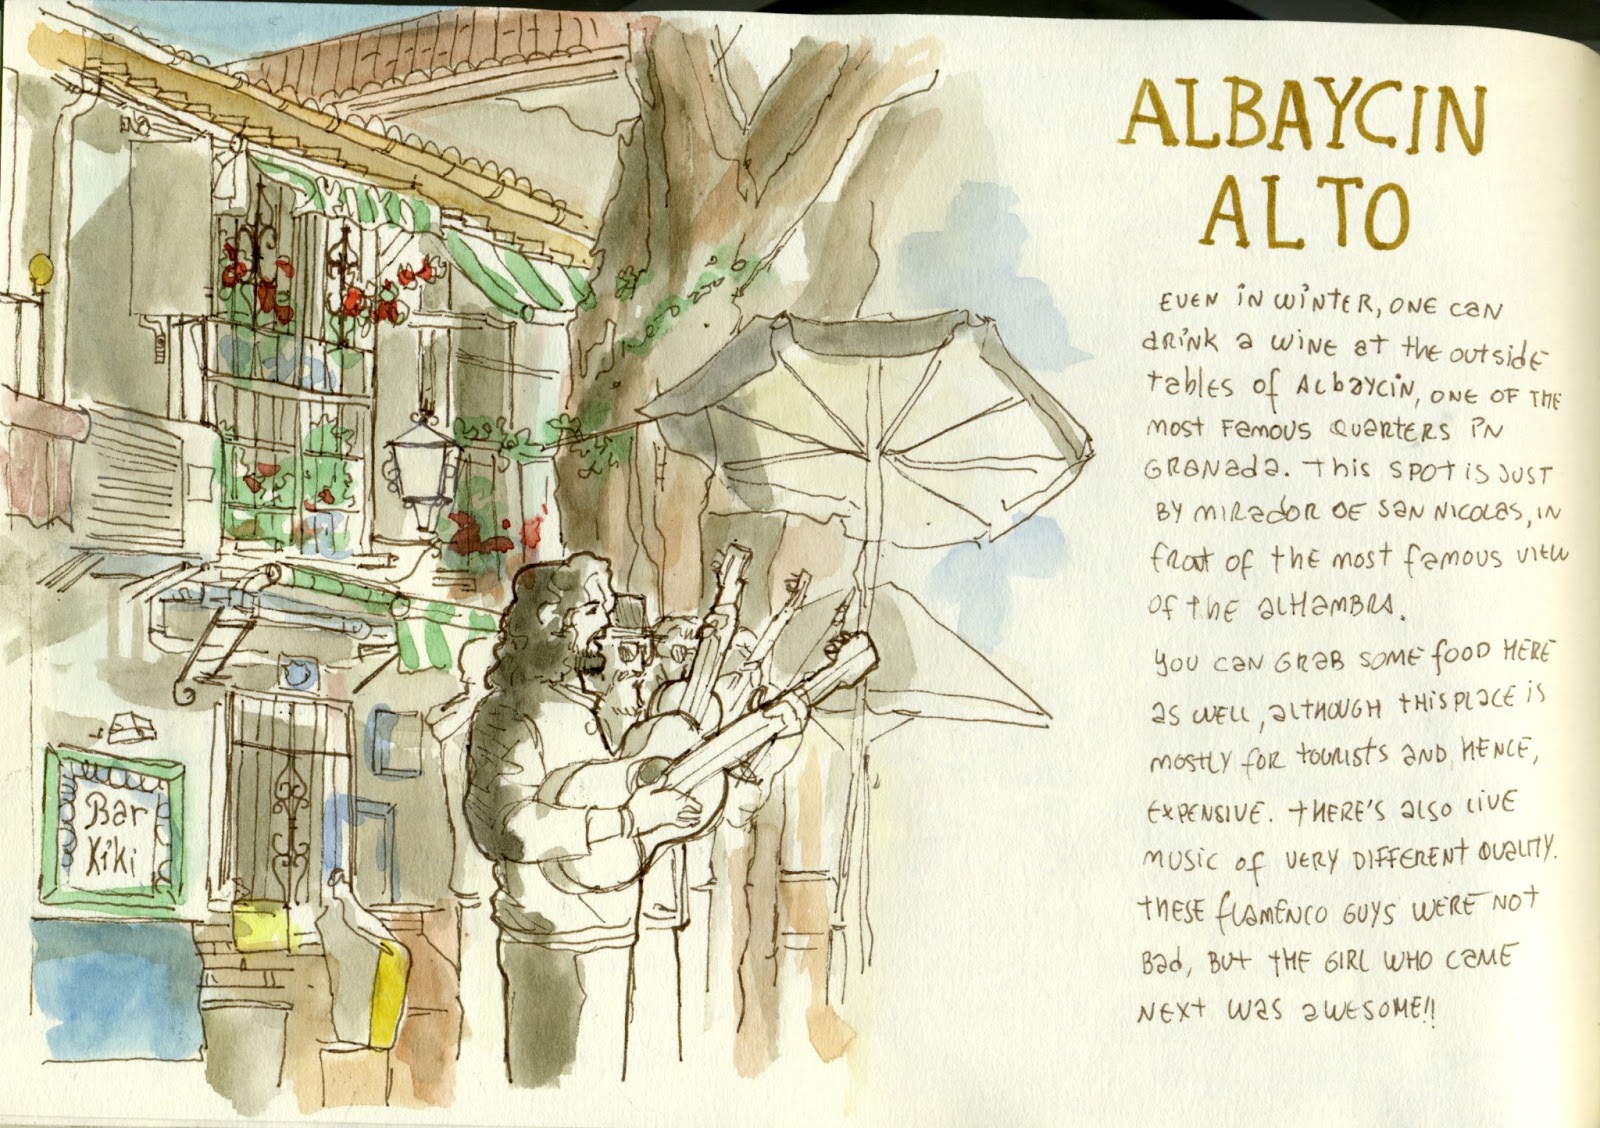 ALBAYCIN
ALTO
EVEN IN WINTER, ONE CAN
DRINK A WINE AT THE OUTSIDE
TABLES OF ALBAYCIN, ONE OF THE
MOST FAMOUS QUARTERS IN
GRANADA. THIS SPOT IS JUST
BY MIRADOR DE SAN NICOLAS, IN
FRONT OF THE MOST FAMOUS VIEW
OF THE ALHAMBRA.
YOU CAN GRAB SOME FOOD HERE
AS WELL, ALTHOUGH THIS PLACE IS
MOSTLY FOR TOURISTS AND, HENCE,
EXPENSIVE. THERE'S ALSO LIVE
MUSIC OF VERY DIFFERENT QUALITY.
THESE FLAMENCO GUYS WERE NOT
BAD, BUT THE GIRL WHO CAME
NEXT WAS AWESOME!!
Bar
Kiki